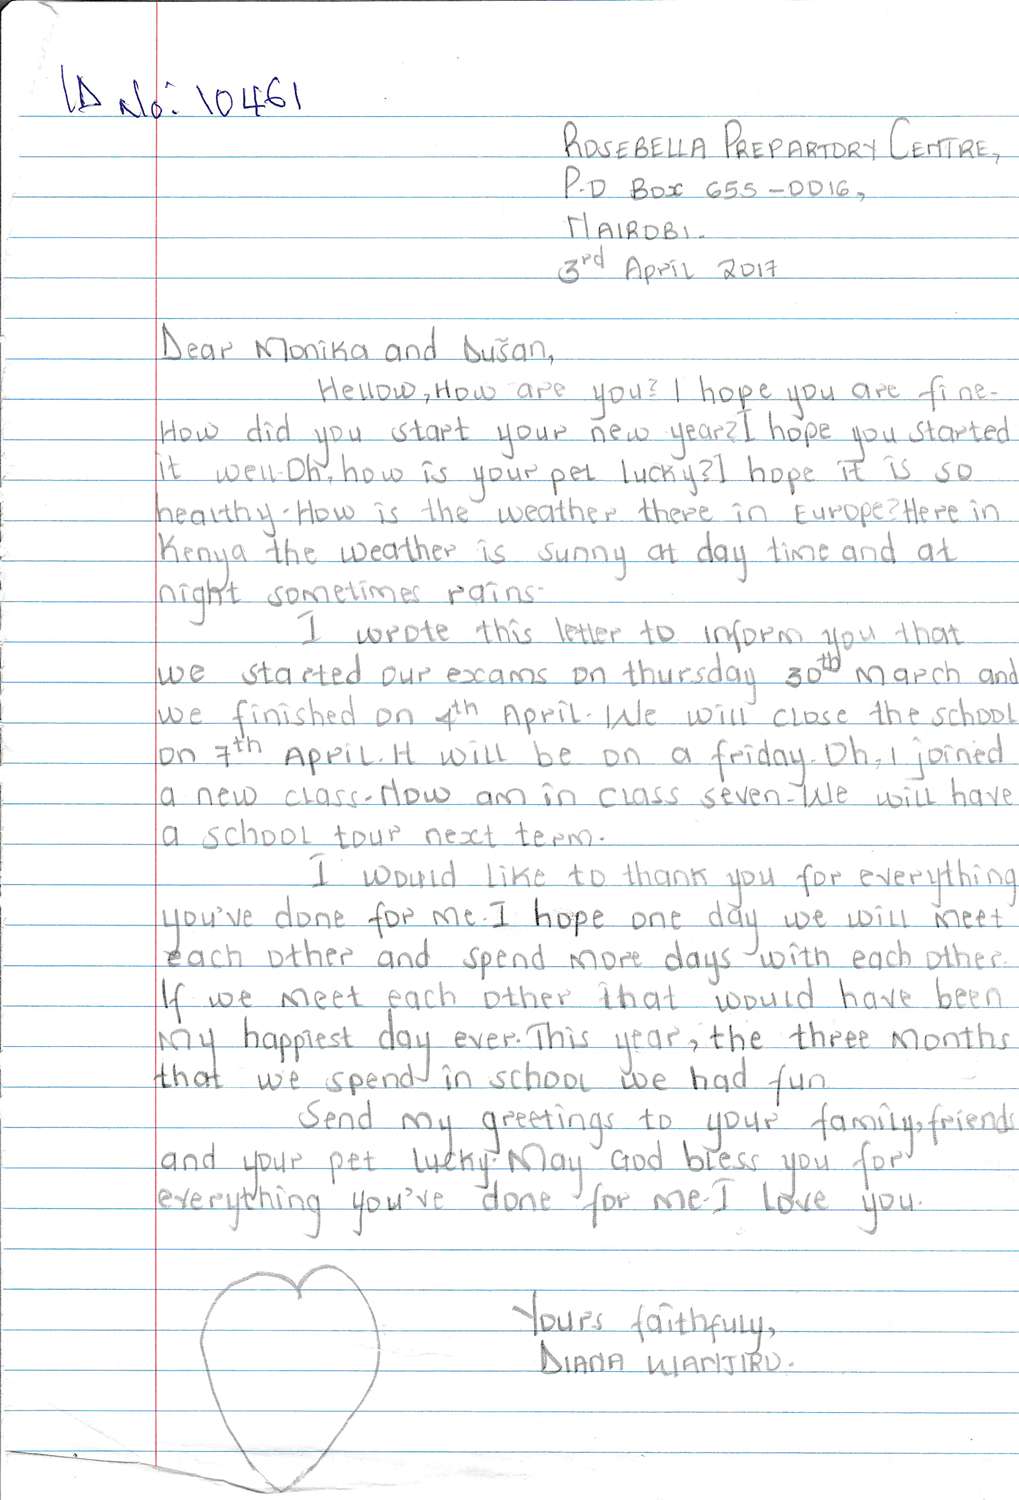 ID No: 10461
ROSEBELLA PREPARTORY CENTRE,
P.O BOX 655-0016,
NAIROBI.
3rd April 2017
Dear Monika and Dušan,
Hellow, How are you? I hope you are fine.
How did you start your new year? I hope you started
it well. Oh, how is your pet lucky? I hope it is so
healthy. How is the weather there in Europe? Here in
Kenya the weather is sunny at day time and at
night sometimes rains.
I wrote this letter to inform you that
we started our exams on thursday 30th March and
we finished on 4th April. We will close the school
on 7th April. It will be on a friday. Oh, I joined
a new class. Now am in class seven. We will have
a school tour next term.
I would like to thank you for everything
you've done for me. I hope one day we will meet
each other and spend more days with each other.
If we meet each other that would have been
my happiest day ever. This year, the three months
that we spend in school we had fun
Send my greetings to your family, friends
and your pet lucky. May God bless you for
everything you've done for me. I love you.
Yours faithfuly,
DIANA WANJIRU.